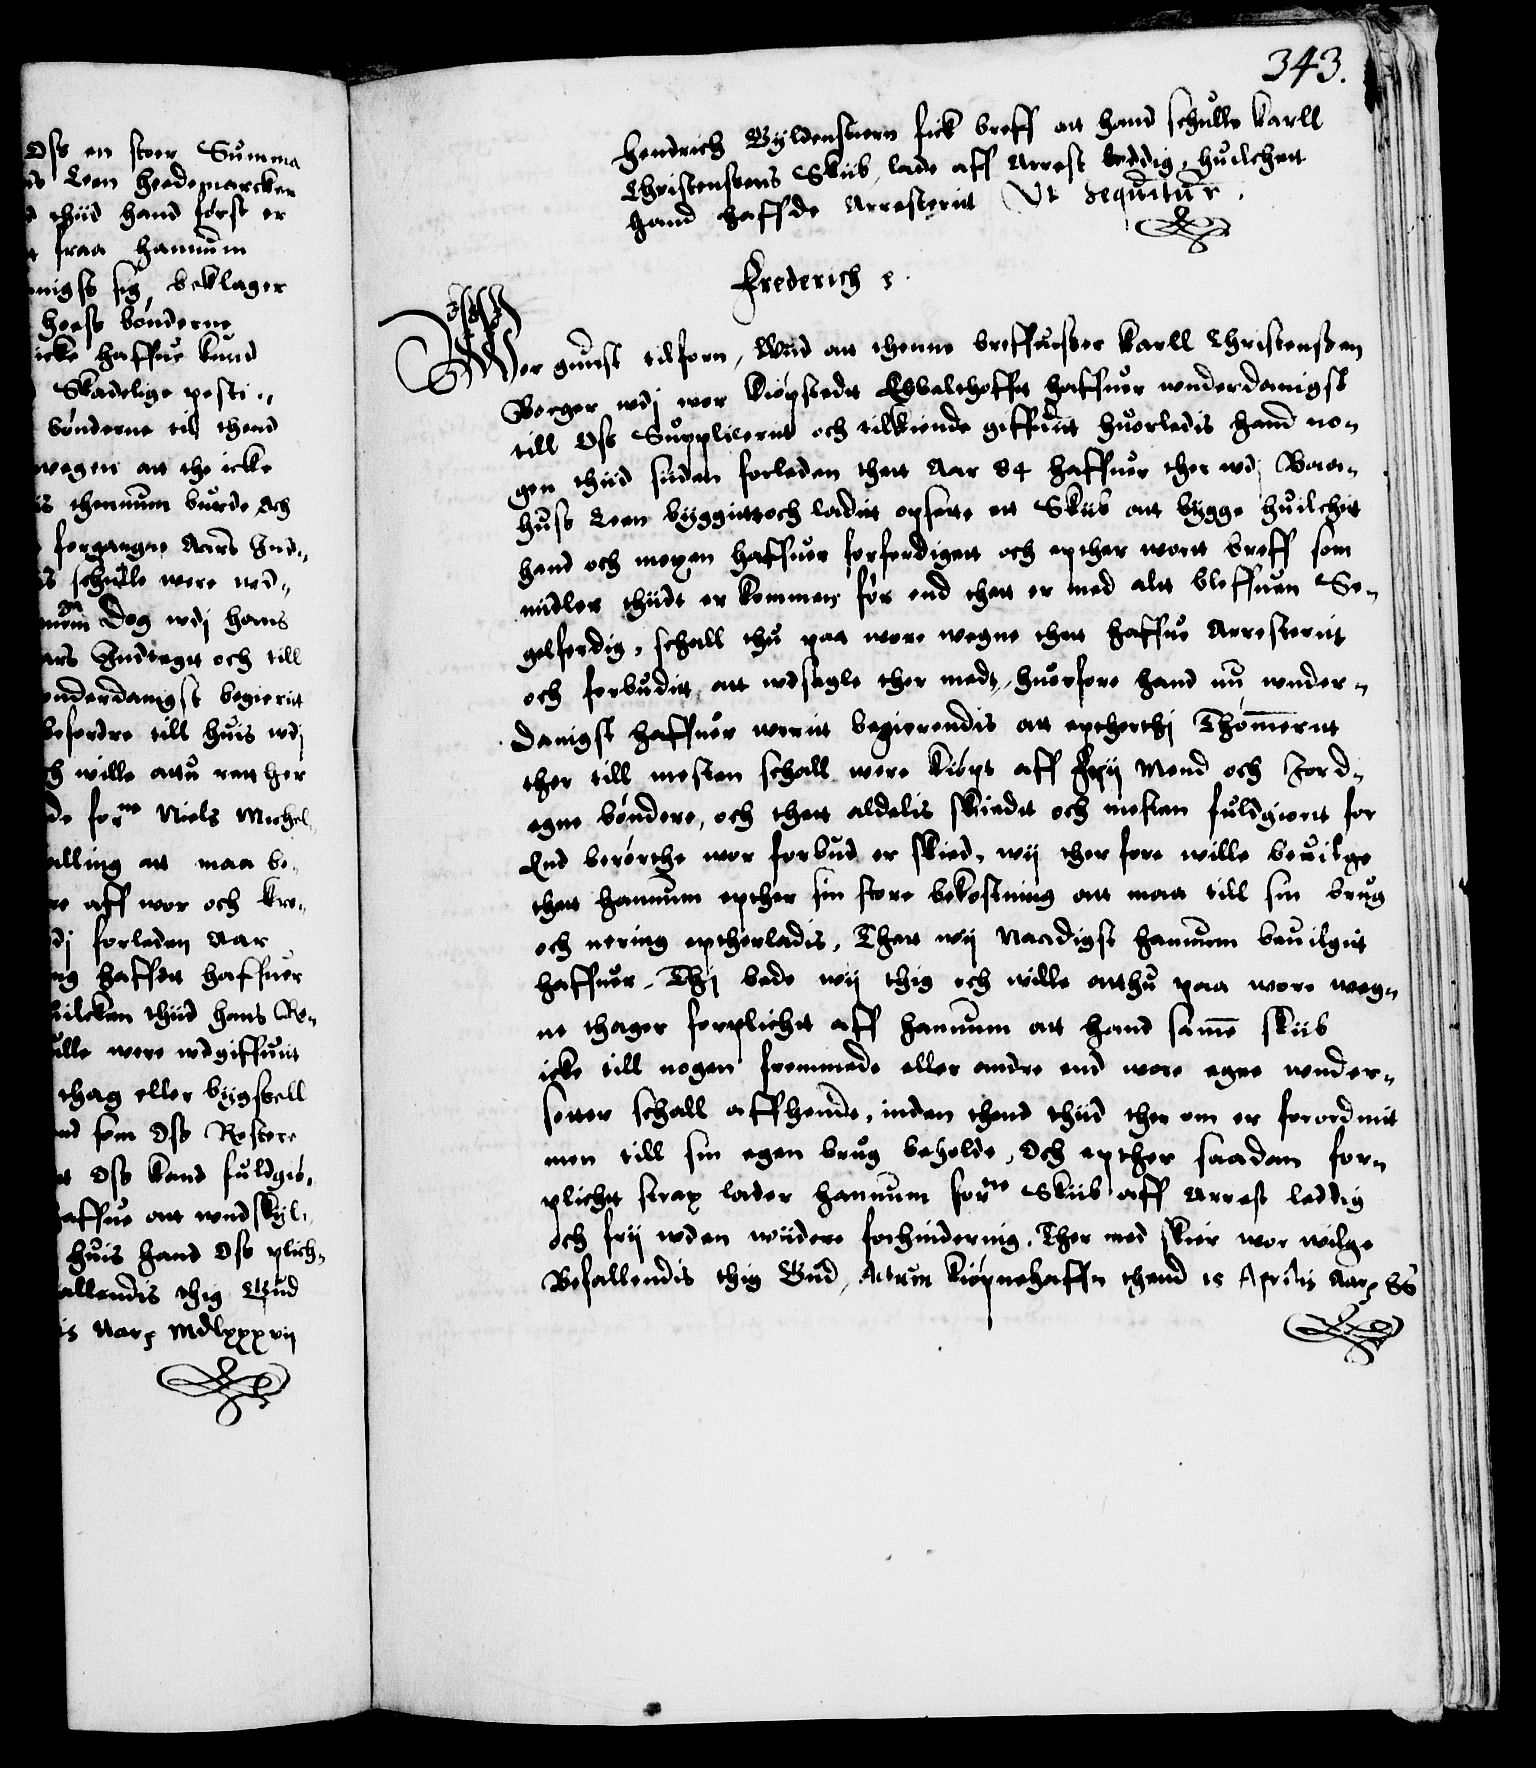 Oss en stoer Summa
Leen Heedemarcken
thiid hand først er
fraa hannum
sig, beklager
bønderne
icke haffue kund
Skadelige pesti„
bønderne till thend
wegen att the icke
thennum burde, Och
forgangne Aars Ind„
schulle were ud„
Dog udj hans
Indtegtt och till
underdanigst begierit
befordre till huis udj
wille attu rett her
forne Niels Michel„
att maa be„
aff wor och Kro„
forleden Aar
haffuer
huilcken thiid hans Re„
were udgiffuit
thag eller bygsell
som Oss Restere
Oss kand fuldgiø„
haffue att undskyl„
huis hand Oss plich„
thig Gud
Aarꝫ Mdlxxxvij
343.
Hendrich Gyldenstiern fick breff att hand schulle Karll
Christensens Skiib, lade aff Arrest leddig, huilchett
hand haffde Arresterit Vt sequitur.
Frederich 2.
Wor gunst tilforn, Wiid att thenne breffuisser Karll Christenssen
Borger udj wor Kiøpstedt Eybelthofft haffuer underdanigst
till Oss Supplicerit och tilkiende giffuit huorledis hand no„
gen thiid siiden forleden thett Aar 84 haffuer ther udj Baa„
huss Leen byggitt och ladit opsette ett Skiib att bygge huilchet
hand och mexen haffuer forferdigett och epther wortt breff som
midler thiidt er kommen, før end thett er med alt bleffuen Se„
gelferdig, schall thu paa wore wegne thett haffue Arresterit
och forbudit, att udsegle ther medt, huorfore hand nu under„
danigst haffuer werit begierendis att eptherthj Thømmerit
ther till mesten schall were kiøpt aff Frij Mend och Jord„
egne bøndere, och thett aldelis skiedt och mesten fuldgiort for
End berørthe wor forbud er skied, wij ther fore wille beuilge
thett hannum epther sin store bekostning att maa till sin brug
och nering eptherladis, Thett wij Naadigst hannum beuilgit
haffuer, Thj bede wij thig och wille atthu paa wore weg„
ne thager forplicht aff hannum att hand samme skiib
icke till nogen fremmede eller andre end wore egne under„
sotter schall affhende, inden thend thiid ther om er forordnit
men till sin egen brug beholde, Och epther saadan for„
plicht strax lader hannum forne Skiib aff Arrest leddig
och frij uden wiidere forhindernig, Ther med skier wor wilge
Befallendis thig Gud, Actum Kiøpnehaffn thend 15 Aprilis Aarꝫ 86